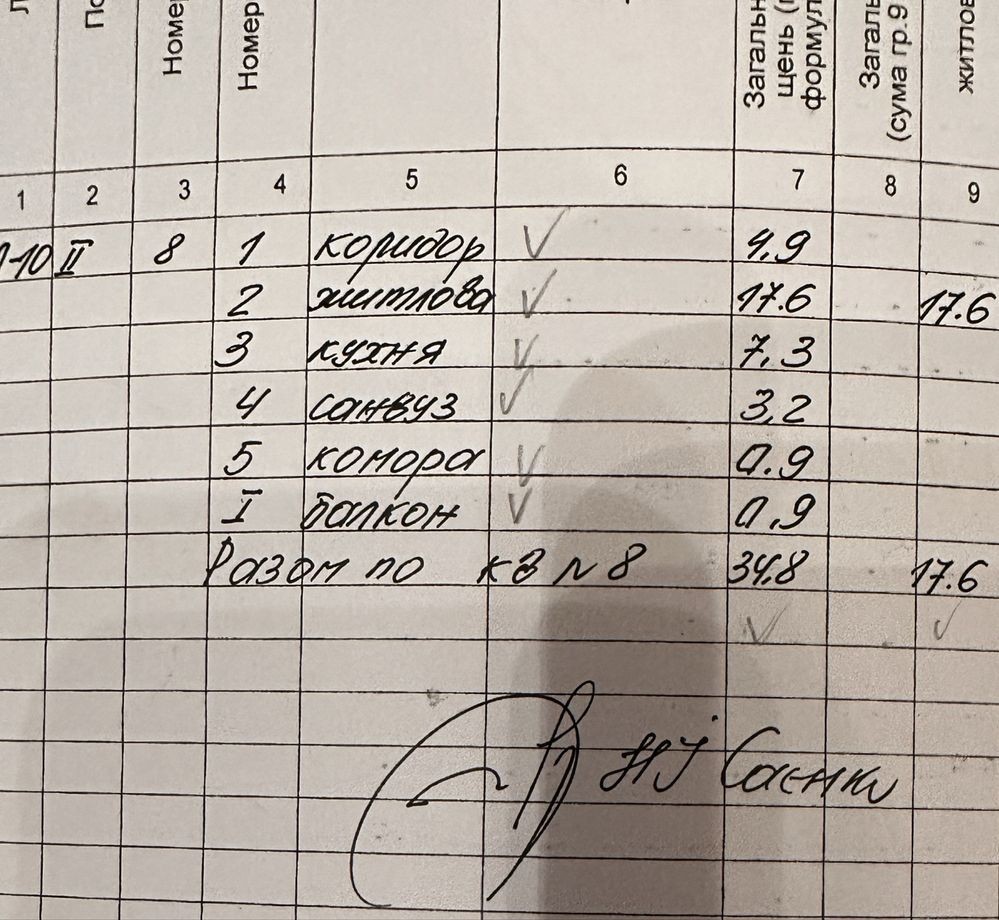 Номер
Номер
Загаль
щень (
формул
Загаль
(сума гр.9
житлов
1 2 3 4 5 6 7 8 9
-10 II 8 1 коридор 4.9
2 житлова 17.6 17.6
3 кухня 7.3
4 санвуз 3,2
5 комора 0.9
I балкон 0,9
Разом по кв N 8 34.8 17.6